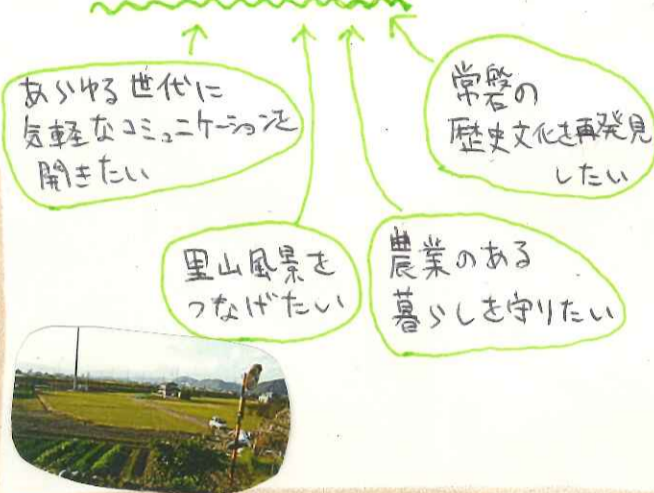 あらゆる世代に
気軽なコミュニケーションを
開きたい
常磐の
歴史文化を再発見
したい
里山風景を
つなげたい
農業のある
暮らしを守りたい